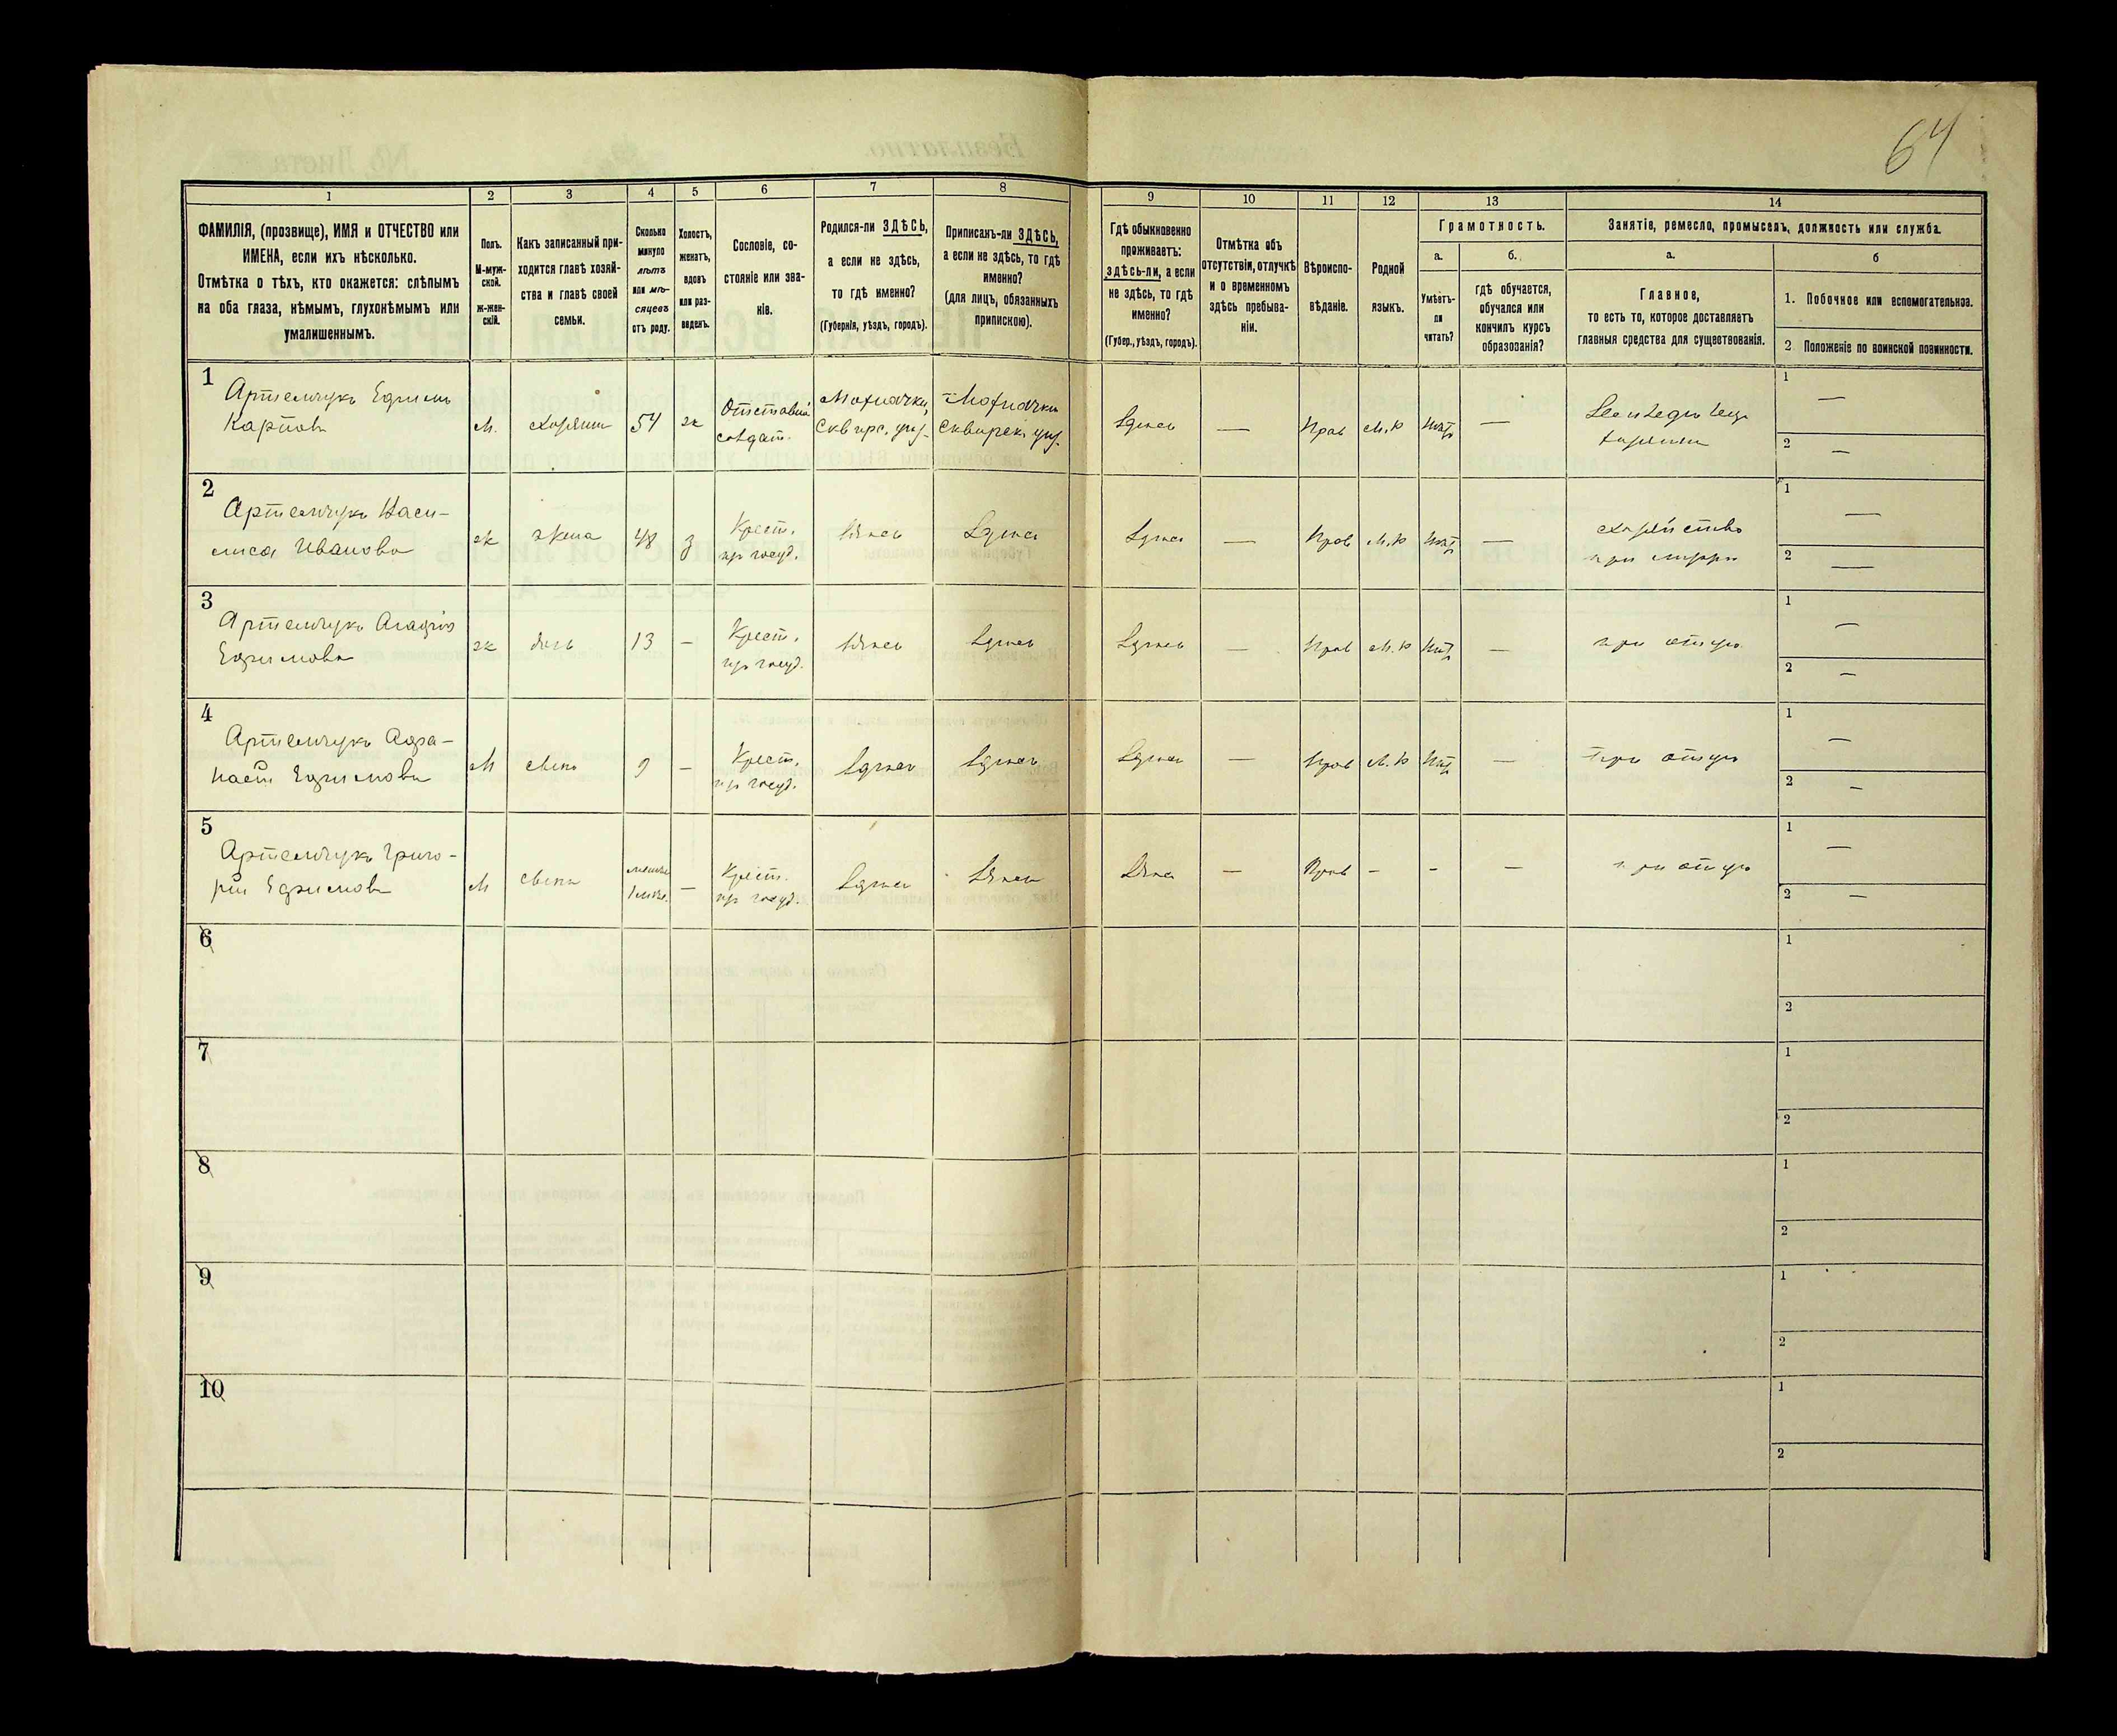 64
1 2 3 4 5 6 7 8 9 10 11 12 13 14
ФАМИЛІЯ, (прозвище), ИМЯ и ОТЧЕСТВО или
ИМЕНА, если ихъ нѣсколько.
Отмѣтка о тѣхъ, кто окажется: слѣпымъ
на оба глаза, нѣмымъ, глухонѣмымъ или
умалишеннымъ.
Полъ.
М-муж-
ской.
ж-жен-
скій.
Какъ записанный при-
ходится главѣ хозяй-
ства и главѣ своей
семьи.
Сколько
минуло
лѣтъ
или мѣ-
сяцевъ
отъ роду.
Холостъ,
женатъ,
вдовъ
или раз-
веденъ.
Сословіе, со-
стояніе или зва-
ніе.
Родился-ли ЗДѢСЬ,
а если не здѣсь,
то гдѣ именно?
(Губернія, уѣздъ, городъ).
Приписанъ-ли ЗДѢСЬ,
а если не здѣсь, то гдѣ
именно?
(для лицъ, обязанныхъ
припискою).
Гдѣ обыкновенно
проживаетъ:
здѣсь-ли, а если
не здѣсь, то гдѣ
именно?
(Губер., уѣздъ, городъ).
Отмѣтка объ
отсутствіи, отлучкѣ
и о временномъ
здѣсь пребыва-
ніи.
Вѣроиспо-
вѣданіе.
Родной
языкъ.
Грамотность.
а.
Умѣетъ-
ли
читать?
б.
гдѣ обучается,
обучался или
кончилъ курсъ
образованія?
Занятіе, ремесло, промыселъ, должность или служба.
а.
Главное,
то есть то, которое доставляетъ
главныя средства для существованія.
б
1. Побочное или вспомогательное.
2 Положеніе по воинской повинности.
1
Артемчукъ Ефимъ
Карповъ
м.
хозяин
54
ж
Отставной
солдат.
Мохначки,
Сквирс. уѣз.
Мохначки
Сквирск. уѣз.
Здѣсь
—
Прав
М.р
нѣт
—
хозяин
1 —
2 —
2
Артемчукъ Васи-
лиса Иванова
ж
жена
48
з
Крест.
из госуд.
Здѣсь
Здѣсь
Здѣсь
—
Прав
М.р
нѣт
—
хозяйство
при мужѣ
1 —
2 —
3
Артемчукъ Агафія
Ефимова
ж
дочь
13
—
Крест.
из госуд.
Здѣсь
Здѣсь
Здѣсь
—
Прав
М.р
нѣт
—
при отцѣ
1 —
2 —
4
Артемчукъ Афа-
насій Ефимовъ
М
сынъ
9
—
Крест.
из госуд.
Здѣсь
Здѣсь
Здѣсь
—
Прав
М.р
нѣт
—
при отцѣ
1 —
2 —
5
Артемчукъ Григо-
рій Ефимовъ
М
сынъ
менѣе
—
Крест.
из госуд.
Здѣсь
Здѣсь
Здѣсь
—
Прав
-
-
—
при отцѣ
1 —
2 —
6
1
2
7
1
2
8
1
2
9
1
2
10
1
2